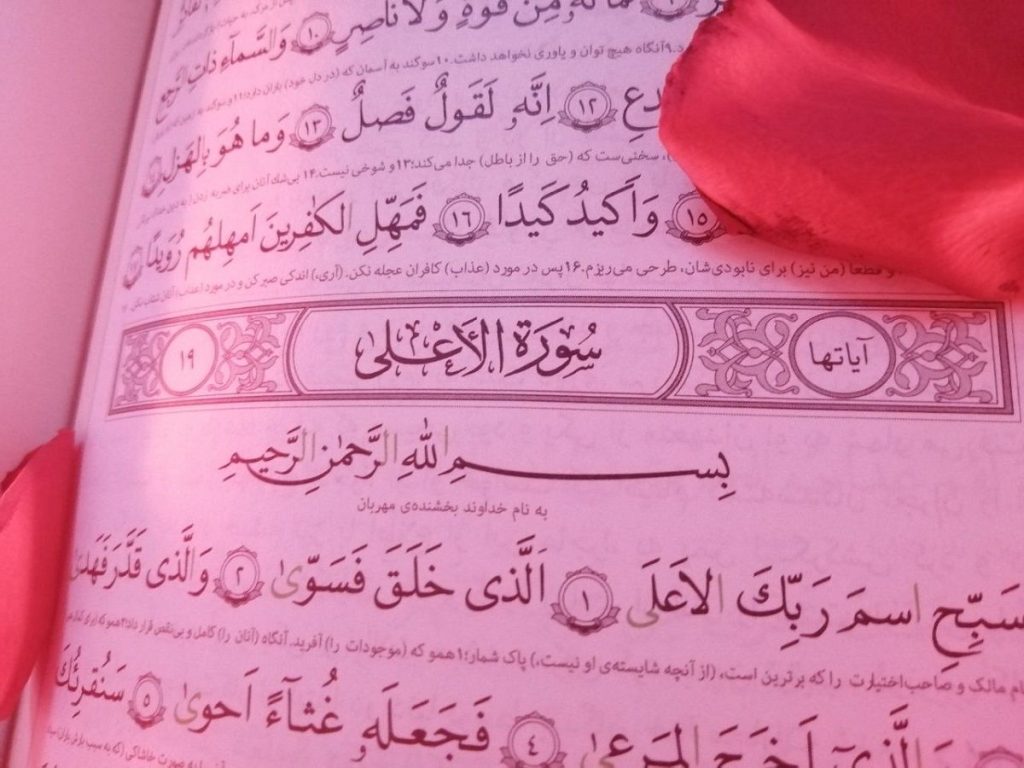 فَمَا لَهُ مِن قُوَّةٍ وَلَا نَاصِرٍ ١٠ وَالسَّمَآءِ ذَاتِ الرَّجعِ
٩.آنگاه هیچ توان و یاوری نخواهد داشت.١٠ سوگند به آسمان که (در دل خود) باران دارد؛١١ و سوگند به زمین که
١٢ اِنَّهُ لَقَولٌ فَصلٌ ١٣ وَما هُوَ بِالهَزلِ
سخنی‌ست که (حق را از باطل) جدا می‌کند؛١٣ و شوخی نیست.١٤ بی‌شک آنان برای ضربه زدن
١٥ وَاَکیدُ کَیدًا ١٦ فَمَهِّلِ الکٰفِرینَ اَمهِلهُم رُوَیدًا
و قطعاً (من نیز) برای نابودی‌شان، طرحی می‌ریزم.١٦ پس در مورد (عذاب) کافران عجله نکن. (آری،) اندکی صبر کن و در مورد (عذاب) آنان شتاب نکن.
آیاتها سُورَةُ الأَعْلىٰ ١٩
بِسمِ اللّٰهِ الرَّحمٰنِ الرَّحیمِ
به نام خداوند بخشنده‌ی مهربان
سَبِّحِ اسمَ رَبِّكَ الاَعلَی ١ اَلَّذی خَلَقَ فَسَوّیٰ ٢ وَالَّذی قَدَّرَ فَهَدیٰ
نام مالک و صاحب‌اختیارت را که برترین است، (از آنچه شایسته‌ی او نیست،) پاک شمار؛١ همو که (موجودات را) آفرید. آنگاه (آنان را) کامل و بی‌نقص قرار داد؛٢ همو که
وَالَّذیٓ اَخرَجَ المَرعیٰ ٤ فَجَعَلَهُ غُثآءً اَحویٰ ٥ سَنُقرِئُكَ
به صورت خاشاکی (که به سبب